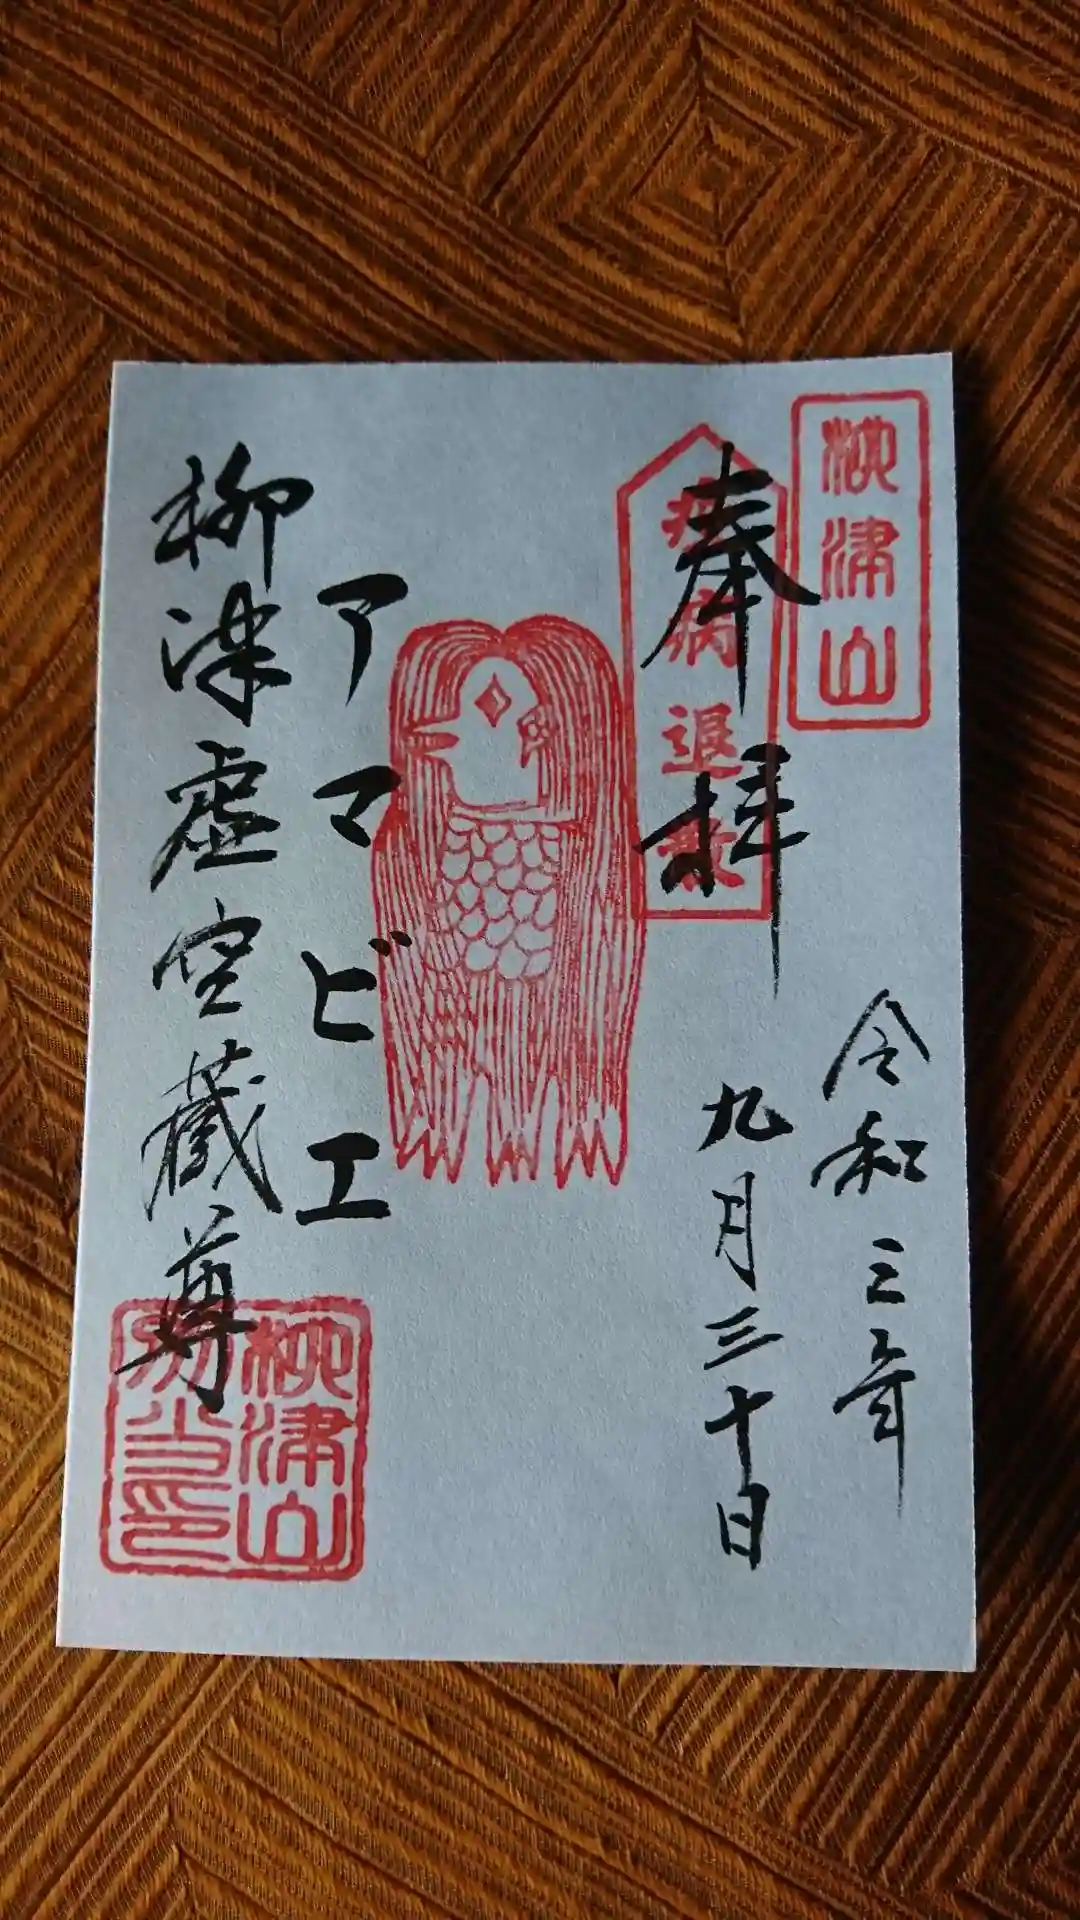 柳津山
奉拝
疫病退散
令和三年
九月三十日
アマビエ
柳津虚空蔵尊
柳津山
別当印